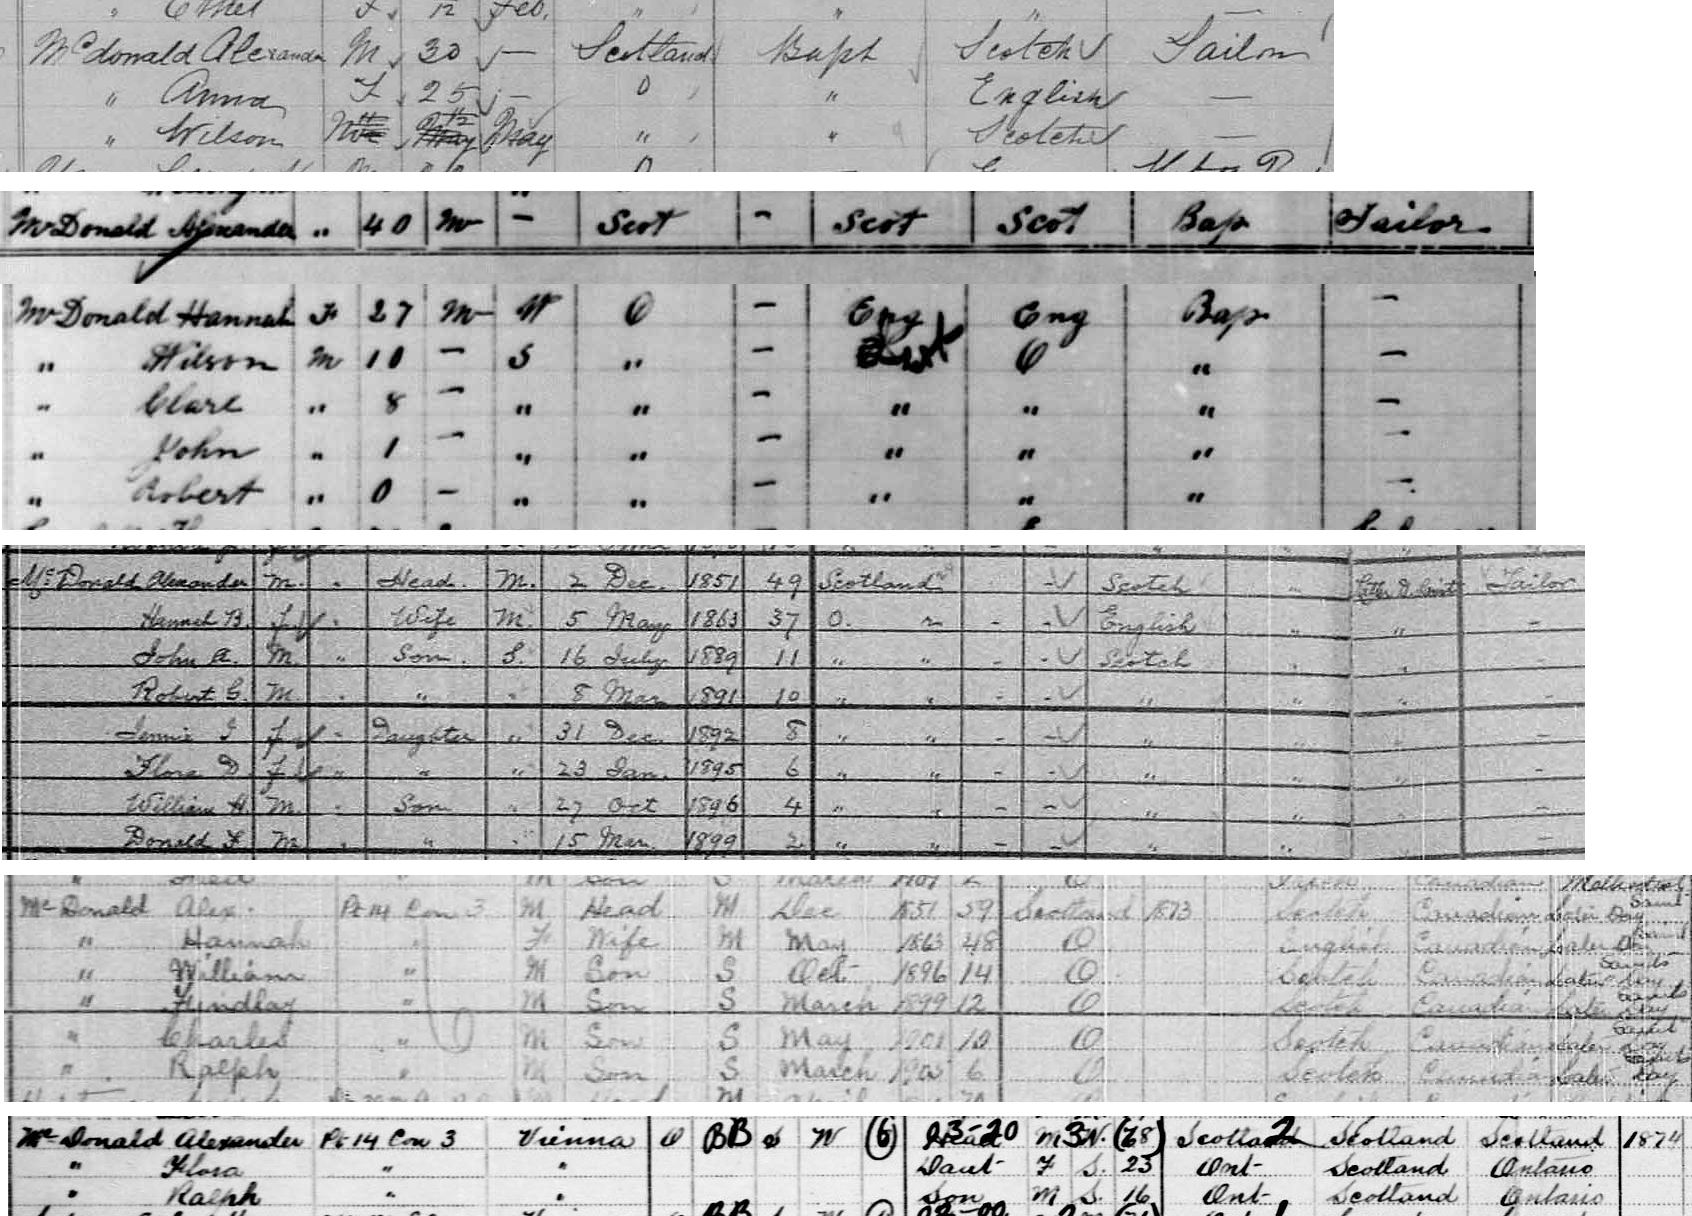 " Ethel F. 12 Feb. " "
McDonald Alexander M. 30 — Scotland Bapt Scotch Tailor
" Anna F. 25 — O " English —
" Wilson May " " Scotch —
McDonald Alexander " 40 M - Scot - Scot Scot Bap Tailor
McDonald Hannah F 27 M W O - Eng Eng Bap -
" Wilson M 10 - S " - O " -
" Clare " 8 - " " - " " " -
" John " 1 - " " - " " " -
" Robert " 0 - " " - " " " -
McDonald Alexander M. " Head. M. 2 Dec. 1851 49 Scotland - - Scotch " Tailor
Hannah B. F " Wife M. 5 May 1863 37 O. r - - English " " -
John A. M. " Son. S. 16 July 1889 11 " " - - Scotch " " -
Robert G. M. " " " 8 Mar 1891 10 " " - - " " " -
Jennie I F " Daughter " 31 Dec. 1892 8 " " - - " " " -
Flora D. F " " " 23 Jan. 1895 6 " " - - " " " -
William H. M. " Son " 27 Oct 1896 4 " " - - " " " -
Donald F. M. " " " 15 Mar. 1899 2 " " - - " " -
McDonald Alex. Pt 14 Con 3 M Head M Dec 1851 59 Scotland 1873 Scotch Canadian Later Day Saint
" Hannah " F Wife M May 1863 48 O English Canadian Later Day Saint
" William " M Son S Oct 1896 14 O Scotch Canadian Later Day Saints
" Fyndlay " M Son S March 1899 12 O Scotch Canadian Later Day Saints
" Charles " M Son S May 1901 10 O Scotch Canadian Later Day Saint
" Ralph " M Son S March 1905 6 O Scotch Canadian Later Day Saints
McDonald Alexander Pt 14 Con 3 Vienna O BB S W (6) Head 3-20 M 3 N. (68) Scotland 2 Scotland Scotland 1874
" Flora " " Daut F S. 23 Ont Scotland Ontario
" Ralph " " Son M S. 16 Ont Scotland Ontario